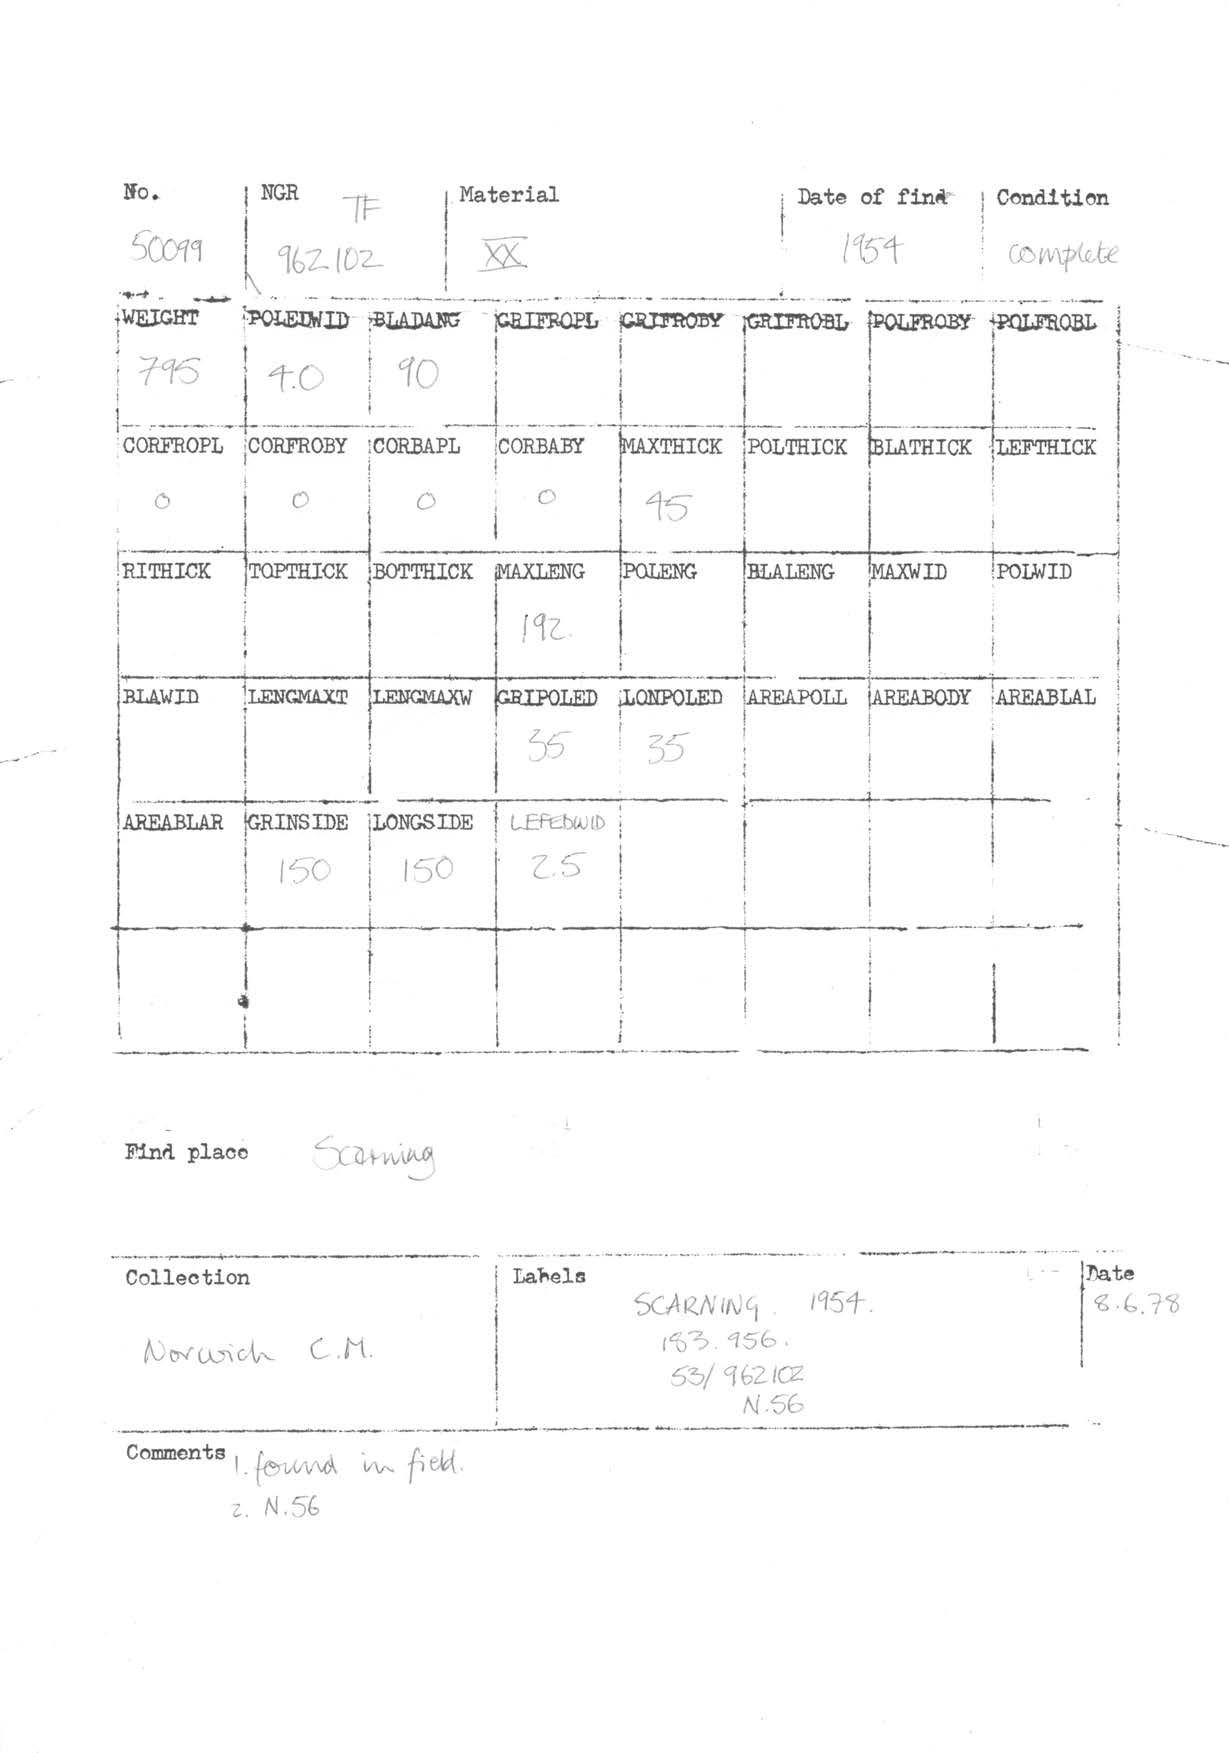 No. NGR TF Material Date of find Condition
50099 962102 XX 1954 complete
WEIGHT POLEDWID BLADANG GRIFROPL GRIFROBY GRIFROBL POLFROBY POLFROBL
795 4.0 90
CORFROPL CORFROBY CORBAPL CORBABY MAXTHICK POLTHICK BLATHICK LEFTHICK
0 0 0 0 45
RITHICK TOPTHICK BOTTHICK MAXLENG POLENG BLALENG MAXWID POLWID
192.
BLAWID LENGMAXT LENGMAXW GRIPOLED LONPOLED AREAPOLL AREABODY AREABLAL
35 35
AREABLAR GRINSIDE LONGSIDE LEFEDWID
150 150 2.5
Find place Scarning
Collection Labels Date
SCARNING. 1954. 8.6.78
Norwich C.M. 183.956.
53/962102
N.56
Comments 1. found in field.
2. N.56